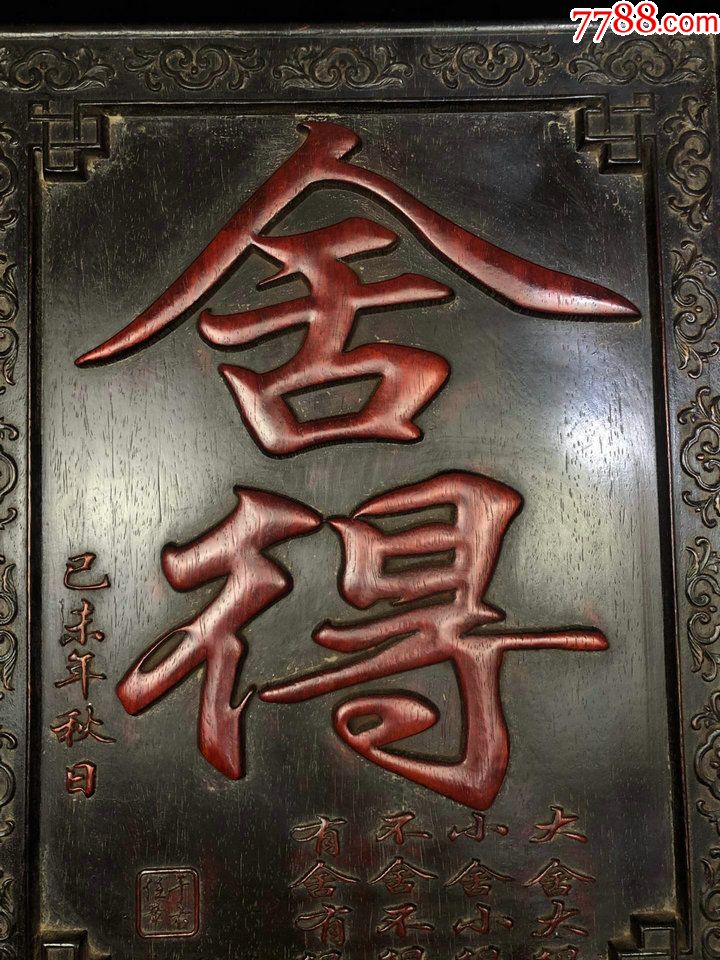 7788.com
舍
得
己未年秋日
大舍大得
小舍小得
不舍不得
有舍有得